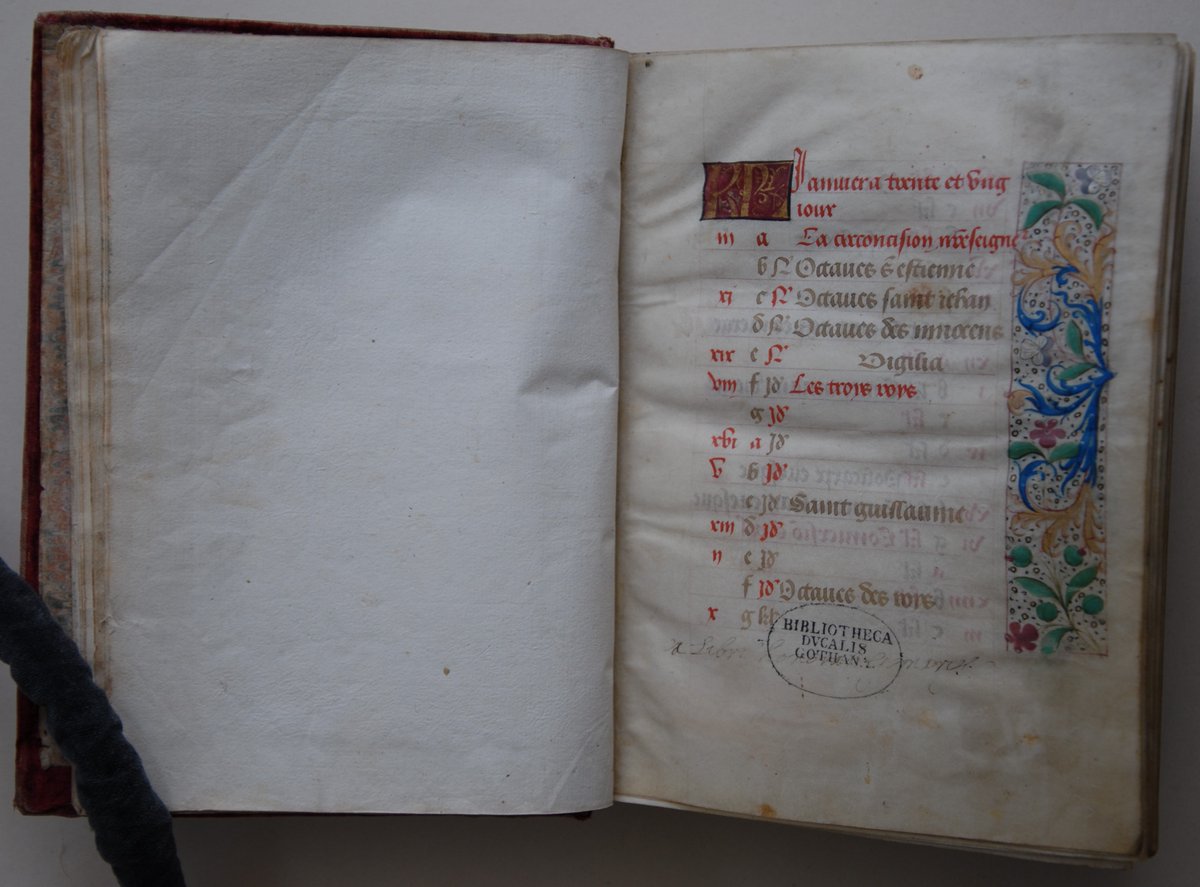 KL Januier a trente et vng
iour
iii a La circonsision nrẽseigne
b N Octaues s̃ estienne
xi c N Octaues saint iehan
d N Octaues des innocens
xix e N Vigilia
viii f id Les troys roys
g id
xvi a id
v b id
c id Saint guillaume
xiii d id
ii e id
f id Octaues des roys
x g kl
BIBLIOTHECA
DVCALIS
GOTHANA